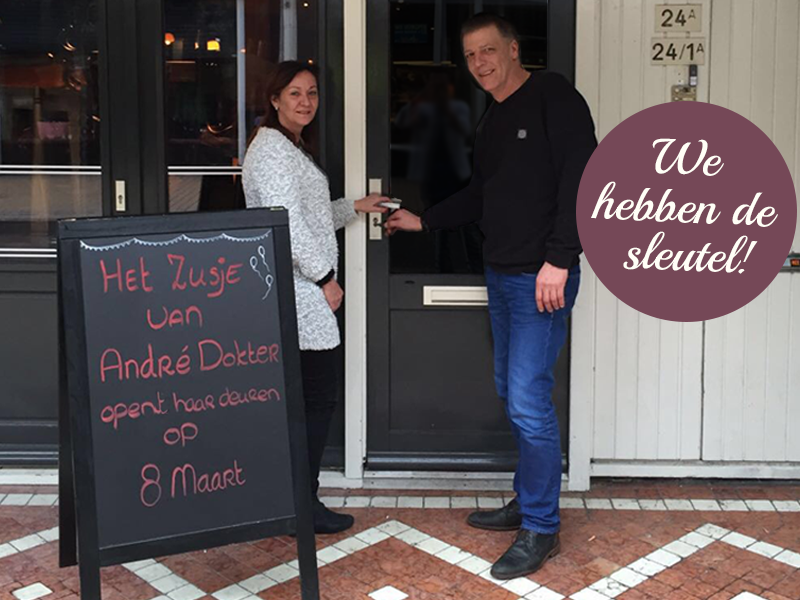 24A
24/1A
We
hebben de
sleutel!
Het Zusje
van
André Dokter
opent haar deuren
op
8 Maart